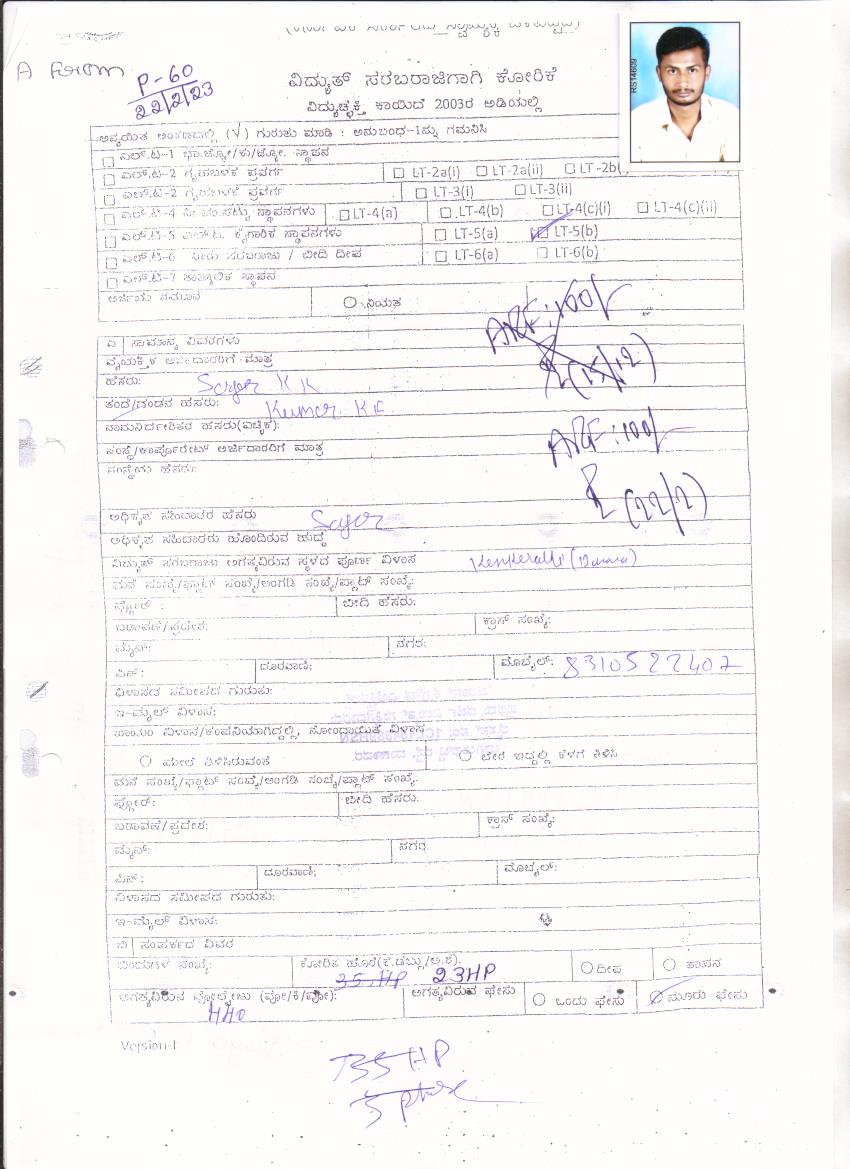 A Form
P-60
22/2/23
RS14609
ವಿದ್ಯುತ್ ಸರಬರಾಜಿಗಾಗಿ ಕೋರಿಕೆ
ವಿದ್ಯುಚ್ಛಕ್ತಿ ಕಾಯಿದೆ 2003ರ ಅಡಿಯಲ್ಲಿ
ಅನ್ವಯಿತ ಅಂಕಣದಲ್ಲಿ (√) ಗುರುತು ಮಾಡಿ : ಅನುಬಂಧ-1ನ್ನು ಗಮನಿಸಿ
ಎಲ್.ಟಿ-1 ಭಾ.ಜ್ಯೋ/ಕು/ಜ್ಯೋ. ಸ್ಥಾಪನ
ಎಲ್.ಟಿ-2 ಗೃಹಬಳಕೆ ಪ್ರವರ್ಗ LT-2a(i) LT-2a(ii) LT-2b(
ಎಲ್.ಟಿ-2 ಗೃಹಬಳಕೆ ಪ್ರವರ್ಗ LT-3(i) LT-3(ii)
ಎಲ್.ಟಿ-4 ನೀ.ಪಂ.ಸೆಟ್ಟು ಸ್ಥಾಪನಗಳು LT-4(a) LT-4(b) LT-4(c)(i) LT-4(c)(ii)
ಎಲ್.ಟಿ-5 ಎಲ್.ಟಿ. ಕೈಗಾರಿಕೆ ಸ್ಥಾಪನಗಳು LT-5(a) LT-5(b)
ಎಲ್.ಟಿ-6 ನೀರು ಸರಬರಾಜು / ಬೀದಿ ದೀಪ LT-6(a) LT-6(b)
ಎಲ್.ಟಿ-7 ತಾತ್ಕಾಲಿಕ ಸ್ಥಾಪನ
ಅರ್ಜಿಯ ನಮೂನೆ ನಿಯತ
ARF:100/-
(15/12)
ಎ ಸಾಮಾನ್ಯ ವಿವರಗಳು
ವೈಯಕ್ತಿಕ ಅರ್ಜಿದಾರರಿಗೆ ಮಾತ್ರ
ಹೆಸರು: K K
ತಂದೆ/ಗಂಡನ ಹೆಸರು: Kumar K
ನಾಮನಿರ್ದೇಶಿತರ ಹೆಸರು(ಐಚ್ಛಿಕ):
ARF:100/-
ಸಂಸ್ಥೆ/ಕಾರ್ಪೊರೇಟ್ ಅರ್ಜಿದಾರರಿಗೆ ಮಾತ್ರ
ಸಂಸ್ಥೆಯ ಹೆಸರು:
(22/2)
ಅಧಿಕೃತ ಸಹಿದಾರರ ಹೆಸರು
ಅಧಿಕೃತ ಸಹಿದಾರರು ಹೊಂದಿರುವ ಹುದ್ದೆ
ವಿದ್ಯುತ್ ಸರಬರಾಜು ಅಗತ್ಯವಿರುವ ಸ್ಥಳದ ಪೂರ್ಣ ವಿಳಾಸ
ಮನೆ ಸಂಖ್ಯೆ/ಫ್ಲಾಟ್ ಸಂಖ್ಯೆ/ಅಂಗಡಿ ಸಂಖ್ಯೆ/ಪ್ಲಾಟ್ ಸಂಖ್ಯೆ:
ಫ್ಲೋರ್ : ಬೀದಿ ಹೆಸರು:
ಬಡಾವಣೆ/ಪ್ರದೇಶ: ಕ್ರಾಸ್ ಸಂಖ್ಯೆ:
ಮೈನ್: ನಗರ:
ಪಿನ್: ದೂರವಾಣಿ: ಮೊಬೈಲ್: 8310522402
ವಿಳಾಸದ ಸಮೀಪದ ಗುರುತು:
ಇ-ಮೈಲ್ ವಿಳಾಸ:
ಖಾಯಂ ವಿಳಾಸ/ಕಂಪೆನಿಯಾಗಿದ್ದಲ್ಲಿ, ನೋಂದಾಯಿತ ವಿಳಾಸ
ಮೇಲೆ ತಿಳಿಸಿರುವಂತೆ ಬೇರೆ ಇದ್ದಲ್ಲಿ ಕೆಳಗೆ ತಿಳಿಸಿ
ಮನೆ ಸಂಖ್ಯೆ/ಫ್ಲಾಟ್ ಸಂಖ್ಯೆ/ಅಂಗಡಿ ಸಂಖ್ಯೆ/ಪ್ಲಾಟ್ ಸಂಖ್ಯೆ:
ಫ್ಲೋರ್: ಬೀದಿ ಹೆಸರು:
ಬಡಾವಣೆ/ಪ್ರದೇಶ: ಕ್ರಾಸ್ ಸಂಖ್ಯೆ:
ಮೈನ್: ನಗರ:
ಪಿನ್: ದೂರವಾಣಿ: ಮೊಬೈಲ್:
ವಿಳಾಸದ ಸಮೀಪದ ಗುರುತು:
ಇ-ಮೈಲ್ ವಿಳಾಸ:
ಬಿ ಸಂಪರ್ಕದ ವಿವರ
ಬಿಂದುಗಳ ಸಂಖ್ಯೆ: ಕೋರಿಕೆ ಹೊರೆ(ಕಿ.ಡಬ್ಲ್ಯು/ಅ.ಶ): 35 HP 23HP ದೀಪ ತಾಪನ
ಅಗತ್ಯವಿರುವ ವೋಲ್ಟೇಜು (ವೋ/ಕಿ/ವೋ): 440 ಅಗತ್ಯವಿರುವ ಫೇಸು ಒಂದು ಫೇಸು ಮೂರು ಫೇಸು
Version-I
35 HP
3 phase